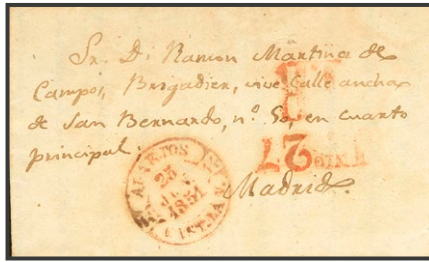 Sr. D. Ramon Martinez de
Campos, Brigadier, vive Calle ancha
de San Bernardo, nº 50, en cuarto
principal.
Madrid.
25
1851
CAST.LA N.